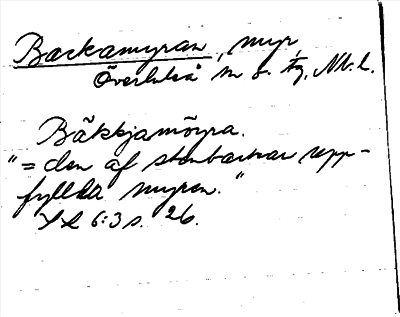 Backamyran, myr,
Överluleå sn o. tg, Nb. l.
Bäkkjamöyra.
"= den af stenbackar upp-
fyllda myren."
6:3 s. 26.